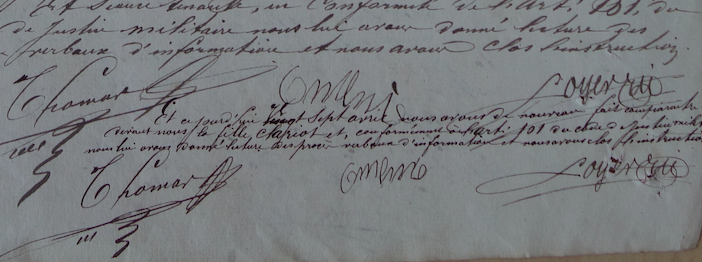 en conformité de l'art. 101, du
de Justice militaire nous lui avons donné lecture des
verbaux d'information et nous avons clos l'instruction.
Thomas Loyer
Et ce jourd'hui Vingt Sept avril nous avons de nouveau fait comparaître
devant nous la fille Clariot et, conformément à l'art. 101 du code de Justice milit
nous lui avons donné lecture des procès verbaux d'information et nous avons clos l'instruction
Thomas Loyer